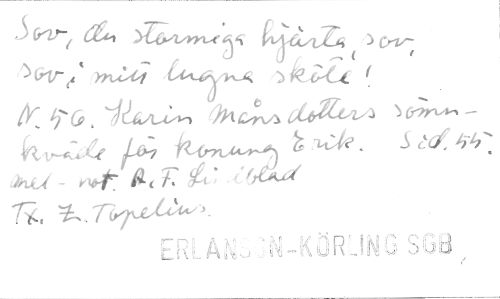 Sov, du stormiga hjärta, sov,
sov, i mitt lugna sköte!
N. 56. Karin Månsdotters sömn-
kväde för konung Erik. Sid. 55.
mel - not. A. F. Lindblad
Tx. Z. Topelius.
ERLANSON-KÖRLING SGB